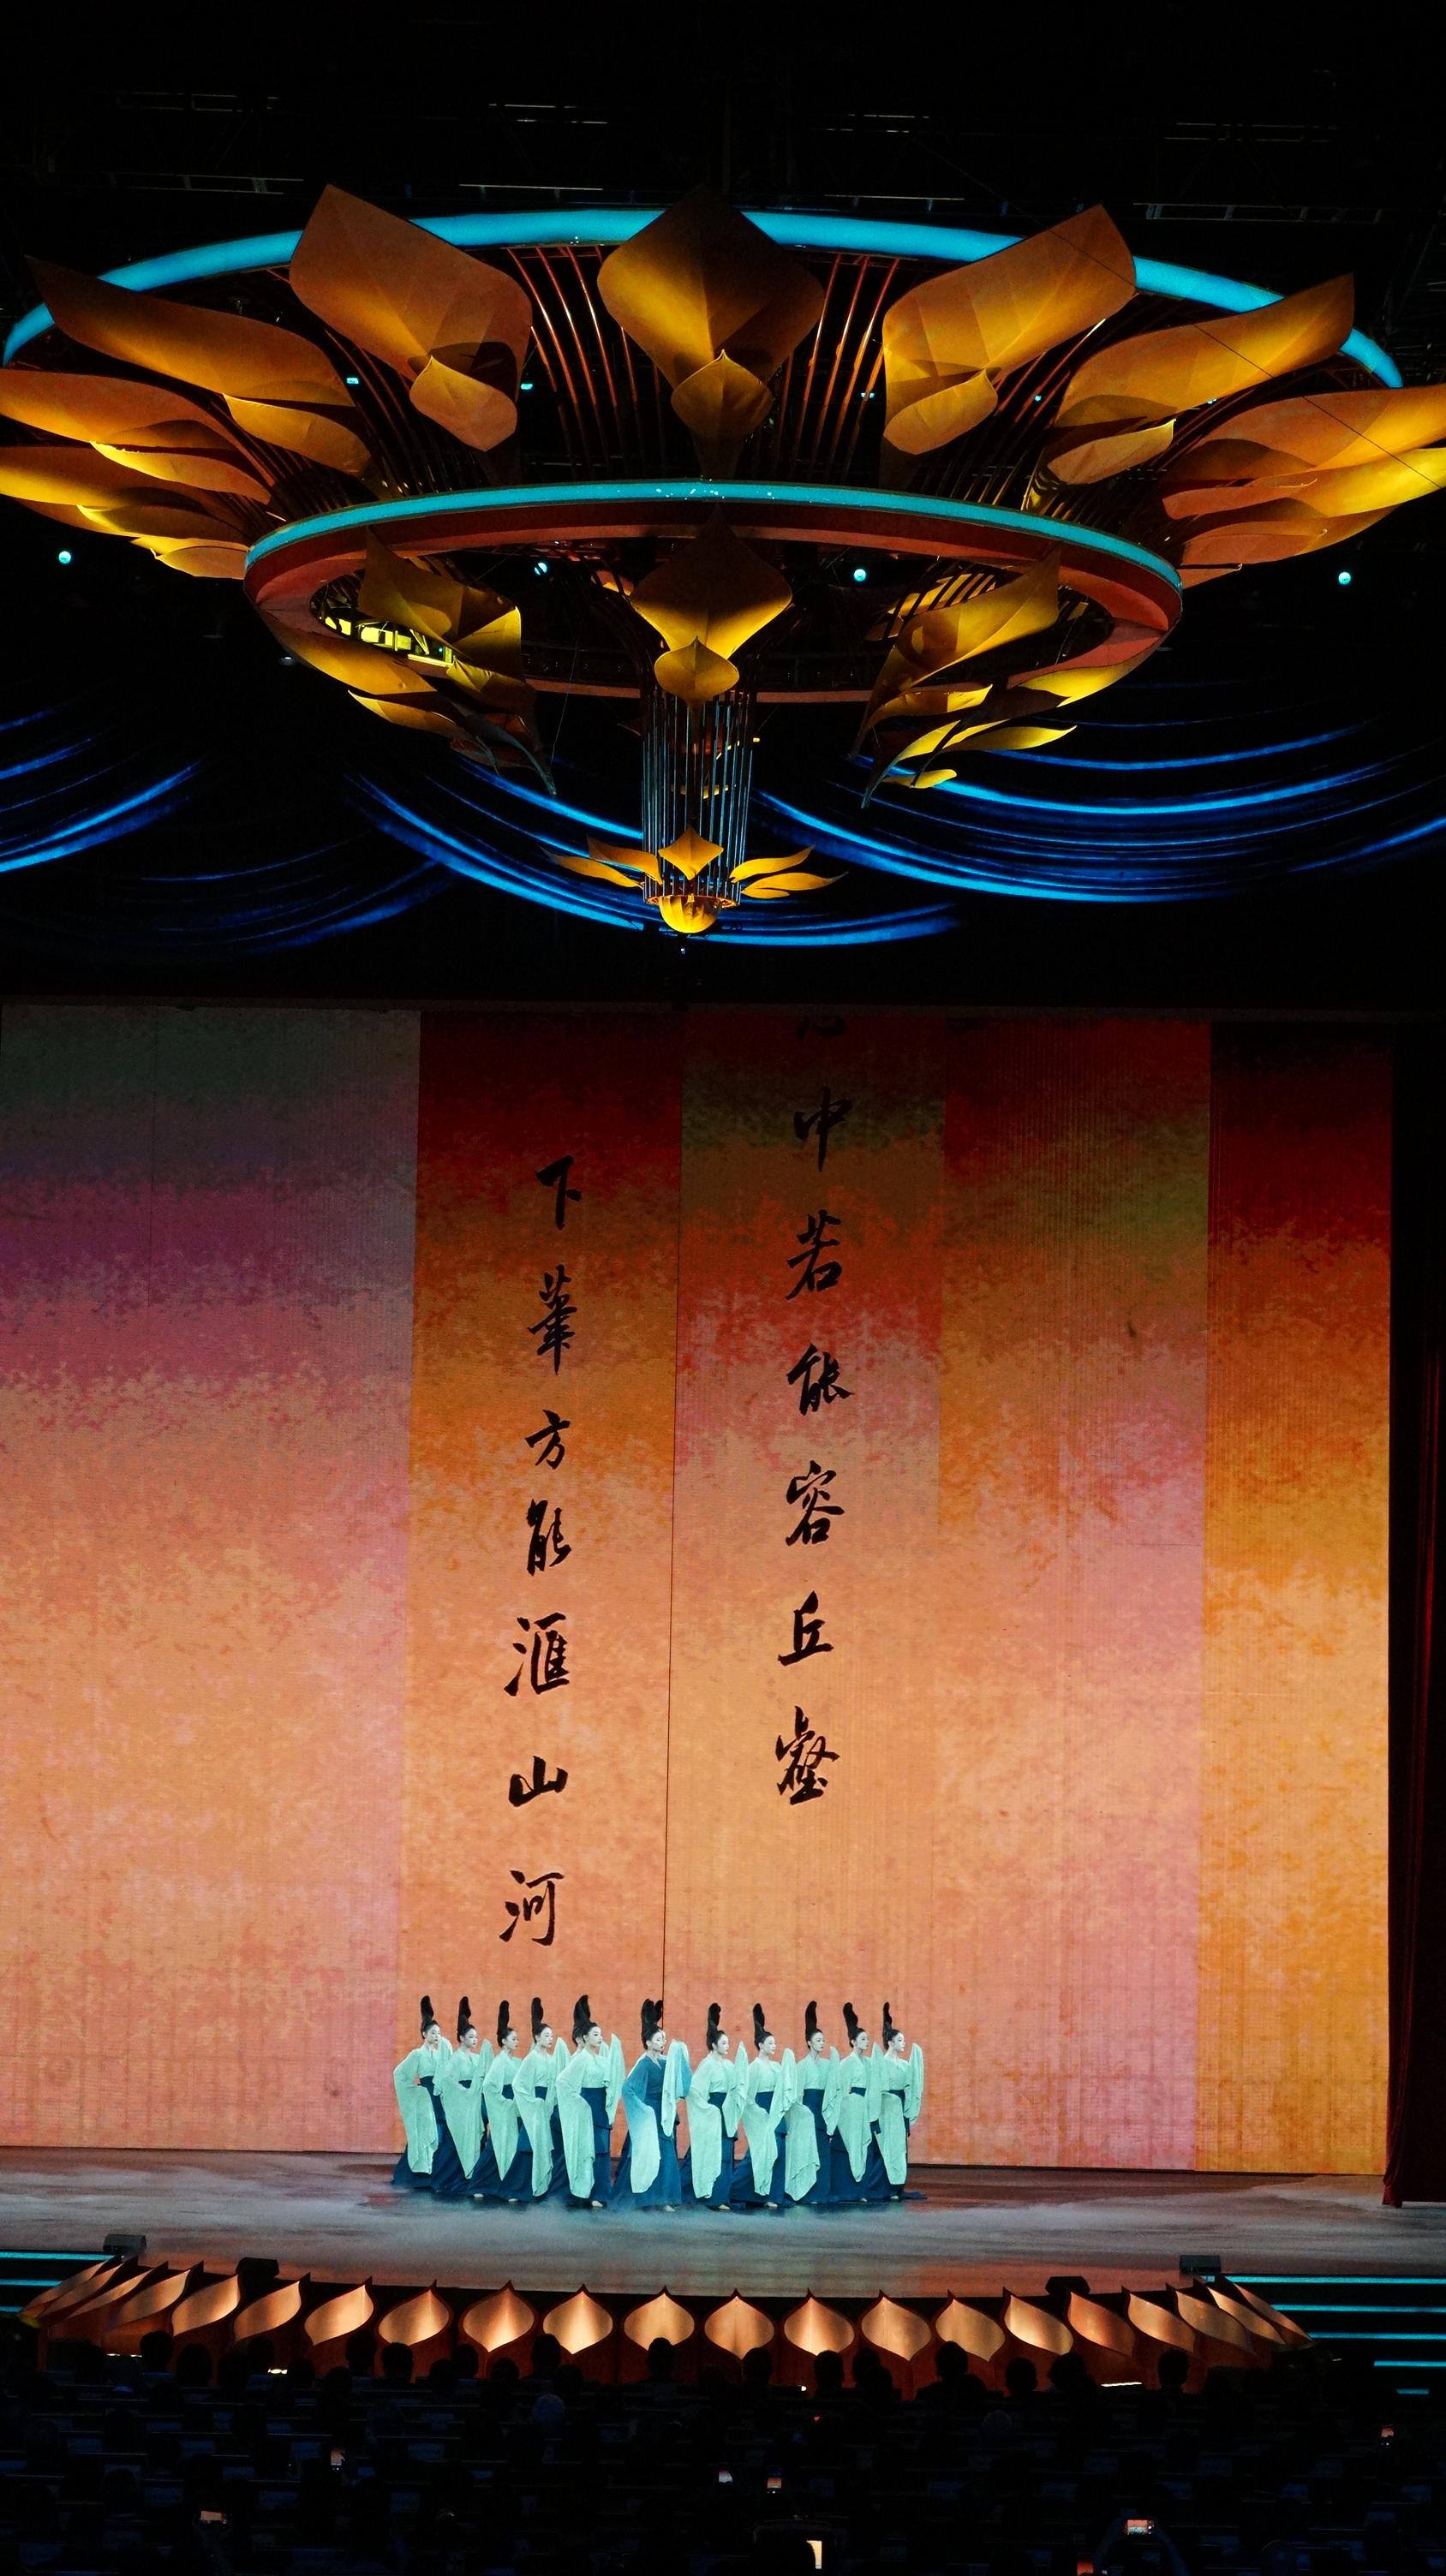 心中若能容丘壑
下筆方能滙山河